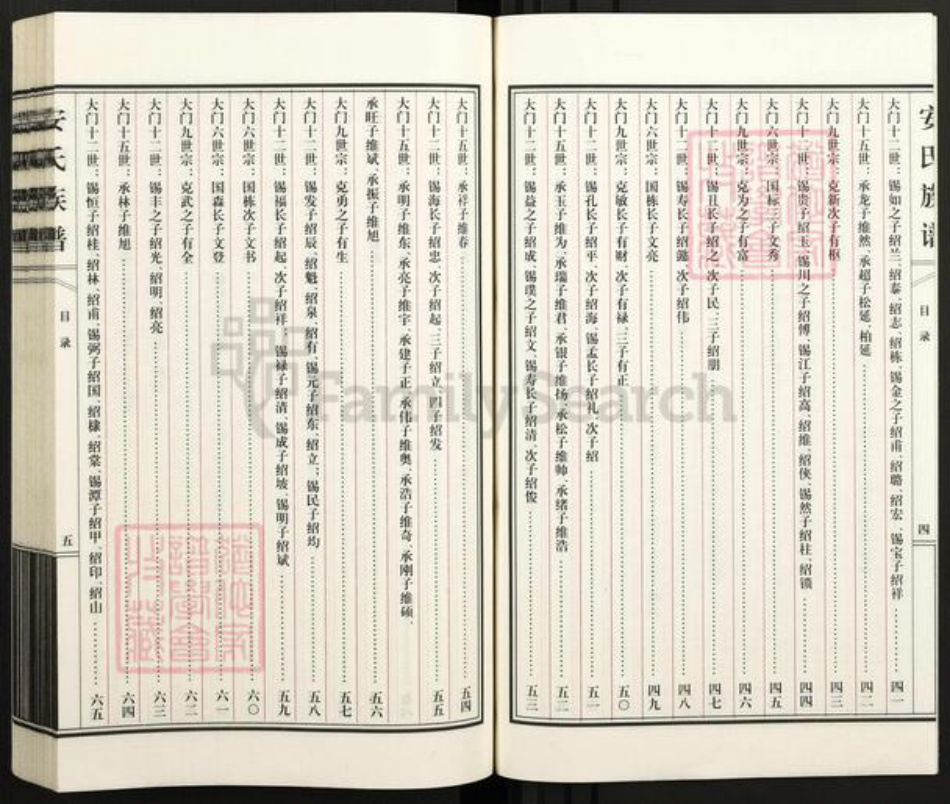 安氏族谱
目录
四
大门十二世：锡如之子绍兰、绍泰、绍志、绍栋、锡金之子绍甫、绍璐、绍宏、锡宝子绍祥……四一
大门十五世：承龙子维然、承超子松延、柏延……四二
大门九世宗：克新次子有枢……四三
大门十二世：锡贵子绍玉、锡川之子绍博、锡江子绍高、绍维、绍侠、锡然子绍柱、绍锁……四四
大门六世宗：国标三子文秀……四五
大门九世宗：克为之子有富……四六
大门十二世：锡且长子绍之、次子民、三子绍朋……四七
大门十二世：锡寿长子绍懿、次子绍伟……四八
大门六世宗：国栋长子文亮……四九
大门九世宗：克敏长子有财、次子有禄、三子有正……五〇
大门十一世：锡孔长子绍平、次子绍海、锡孟长子绍礼、次子绍……五一
大门十五世：承玉子维为、承瑞子维君、承银子维扬、承松子维帅、承绪子维浩……五二
大门十二世：锡益之子绍成、锡璞之子绍文、锡寿长子绍清、次子绍俊……五三
大门十五世：承祥子维春……五四
大门十二世：锡海长子绍忠、次子绍起、三子绍立、四子绍发……五五
大门十五世：承明子维东、承亮子维宇、承建子正、承伟子维奥、承浩子维奇、承刚子维硕、
承旺子维斌、承振子维旭……五六
大门九世宗：克勇之子有生……五七
大门十二世：锡发子绍辰、绍魁、绍泉、绍有、锡元子绍东、绍立；锡民子绍均……五八
大门十二世：锡福长子绍起、次子绍祥、锡禄子绍清、锡成子绍坡、锡明子绍斌……五九
大门六世宗：国栋次子文书……六〇
大门六世宗：国森长子文登……六一
大门九世宗：克武之子有全……六二
大门十二世：锡丰之子绍光、绍明、绍亮……六三
大门十五世：承林子维旭……六四
大门十二世：锡恒子绍桂、绍林、绍甫、锡弼子绍国、绍棣、绍棠、锡潭子绍甲、绍印、绍山……六五
安氏族谱
目录
五
FamilySearch